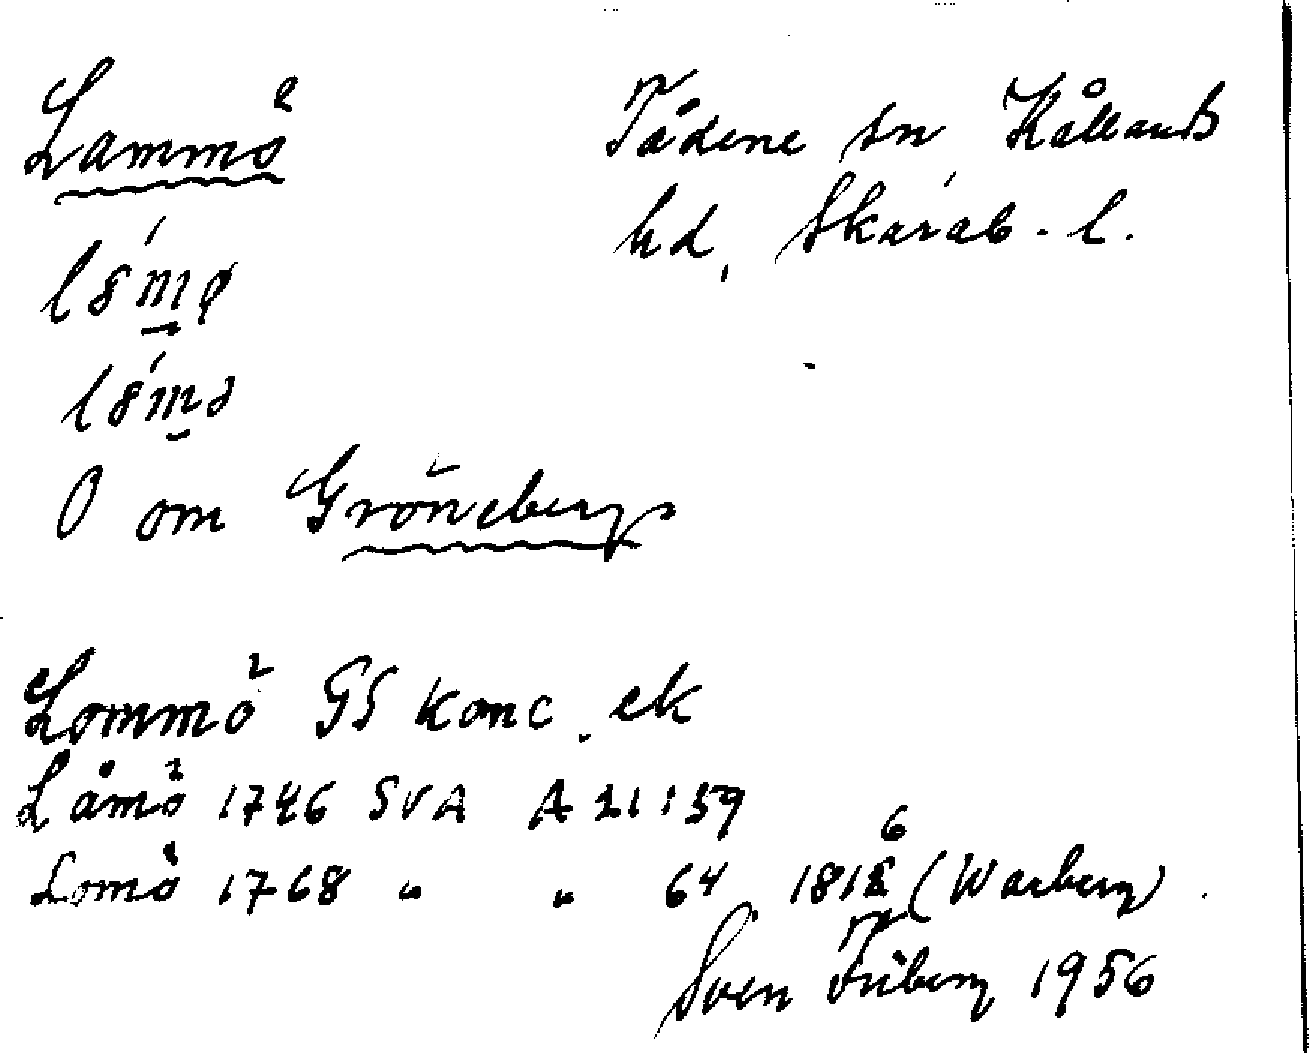 Lammö Tådene sn Kållands
hd, Skarab. l.
O om Gröneberg
Lommö GS konc. ek
Låmö 1746 SVA A 21:59
Lomö 1768 " " 64 1816 (Warberg).
Sven Friberg 1956